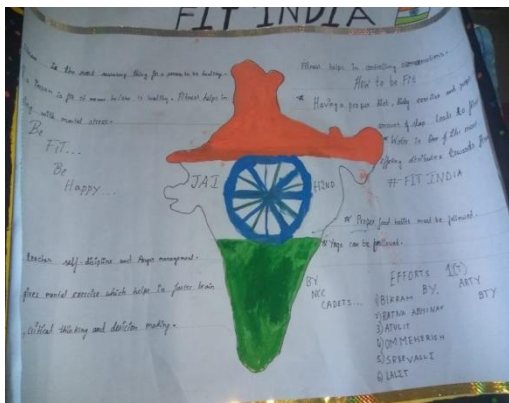 FIT INDIA
is the most necessary thing for a person to be healthy.
Person is fit it means he/she is healthy. Fitness helps in
with mental stress.
Be
FIT...
Be
Happy...
Fitness helps in controlling
How to be Fit
* Having a proper diet, daily exercise and proper
amount of sleep leads to
* Water is one of the most
towards
# FIT INDIA
JAI
HIND
* Proper food habits must be followed.
* Yoga can be followed.
self-discipline and anger management.
gives mental exercise which helps in faster brain
critical thinking and decision making.
BY
NCC
CADETS...
EFFORTS
BY,
1(T)
ARTY
BTY
1) BIKRAM
2) RATNA ABHINAV
3) ATULIT
4)
5) SREEVALLI
6) LALIT